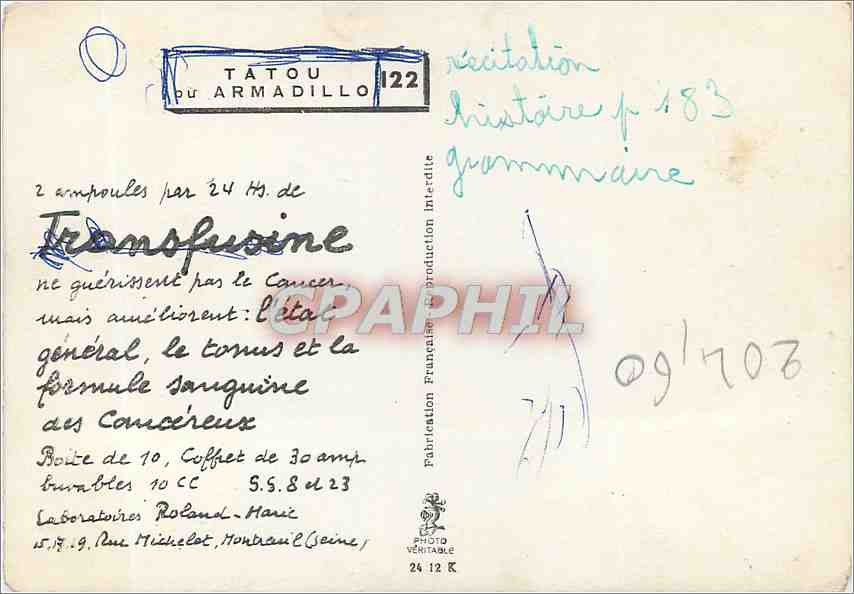 TATOU
ou ARMADILLO
122
récitation
histoire p 183
grammaire
2 ampoules par 24 Hs. de
Transfusine
ne guérissent pas le Cancer,
mais améliorent : l'état
général, le tonus et la
formule sanguine
des Cancéreux
Boîte de 10, Coffret de 30 amp
buvables 10 CC S.S. 8 et 23
Laboratoires Roland-Marie
15.17.19, Rue Michelet, Montreuil (Seine)
Fabrication Française - Reproduction interdite
CPAPHIL
PHOTO
VÉRITABLE
24 12 K